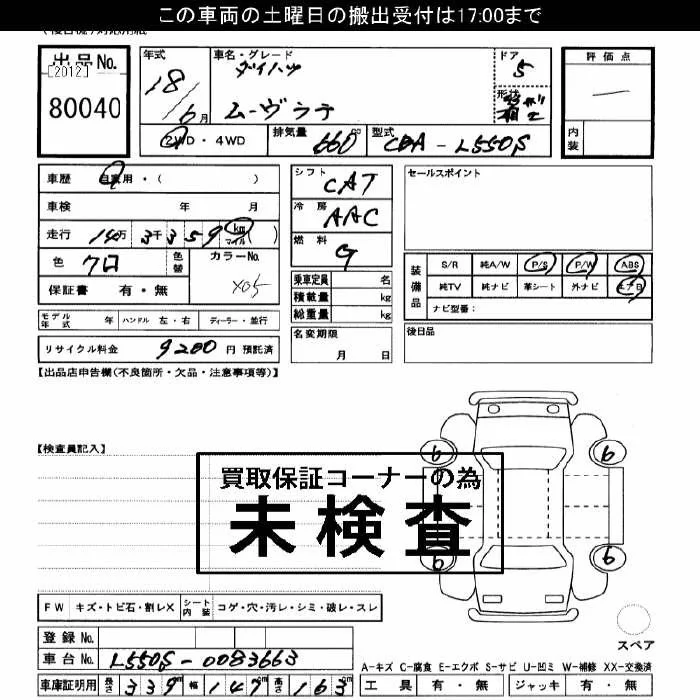 この車両の土曜日の搬出受付は17:00まで
出品No.
[2012]
80040
年式
18/6月
車名・グレード
ダイハツ
ムーヴラテ
ドア
5
形状
評価点
内装
2WD・4WD
排気量 660 cc
型式 CBA-L550S
車歴 自家用・( )
車検 年 月
走行 14万3千359 km マイル ( )
色 クロ 色替
カラーNo.
X05
保証書 有・無
シフト CAT
冷房 AAC
燃料 G
乗車定員 名
積載量 kg
総重量 kg
セールスポイント
装備品
S/R 純A/W P/S P/W ABS
純TV 純ナビ 革シート 外ナビ エアB
ナビ型番:
モデル年式 年 ハンドル 左・右 ディーラー・並行
名変期限
月 日
後日品
リサイクル料金 9200 円 預託済
【出品店申告欄(不良箇所・欠品・注意事項等)】
【検査員記入】
買取保証コーナーの為
未検査
6 6
6 6
FW キズ・トビ石・割レX シート内装 コゲ・穴・汚レ・シミ・破レ・スレ
登録No.
車台No. L550S-0083663
スペア
A-キズ C-腐食 E-エクボ S-サビ U-凹ミ W-補修 XX-交換済
車庫証明用 長さ 339 cm 幅 147 cm 高さ 163 cm
工具 有・無 ジャッキ 有・無